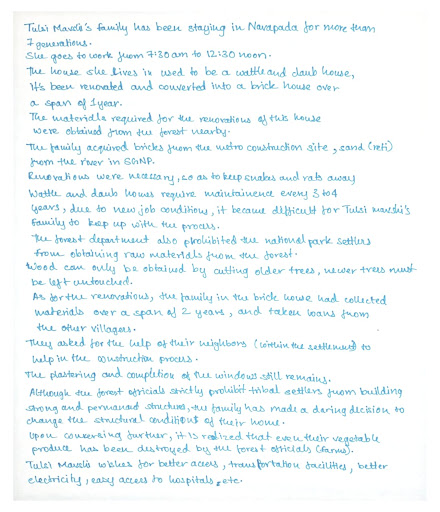 Tulsi Marslo's family has been staying in Navapada for more than
7 generations.
She goes to work from 7:30 am to 12:30 noon.
The house she lives in used to be a wattle and daub house,
It's been renovated and converted into a brick house over
a span of 1 year.
The materials required for the renovations of this house
were obtained from the forest nearby.
The family acquired bricks from the metro construction site, sand (reti)
from the river in SGNP.
Renovations were necessary, so as to keep snakes and rats away
Wattle and daub houses require maintainence every 3 to 4
years, due to new job conditions, it became difficult for Tulsi
family to keep up with the process.
The forest department also prohibited the national park settlers
from obtaining raw materials from the forest.
Wood can only be obtained by cutting older trees, newer trees must
be left untouched.
As for the renovations, the family in the brick house had collected
materials over a span of 2 years, and taken loans from
the other villagers.
They asked for the help of their neighbors (within the settlement) to
help in the construction process.
The plastering and completion of the windows still remains.
Although the forest officials strictly prohibit tribal settlers from building
strong and permanent structures, the family has made a daring decision to
change the structural conditions of their home.
Upon conversing further, it is realized that even their vegetable
produce has been destroyed by the forest officials (farms).
Tulsi wishes for better access, transportation facilities, better
electricity, easy access to hospitals, etc.